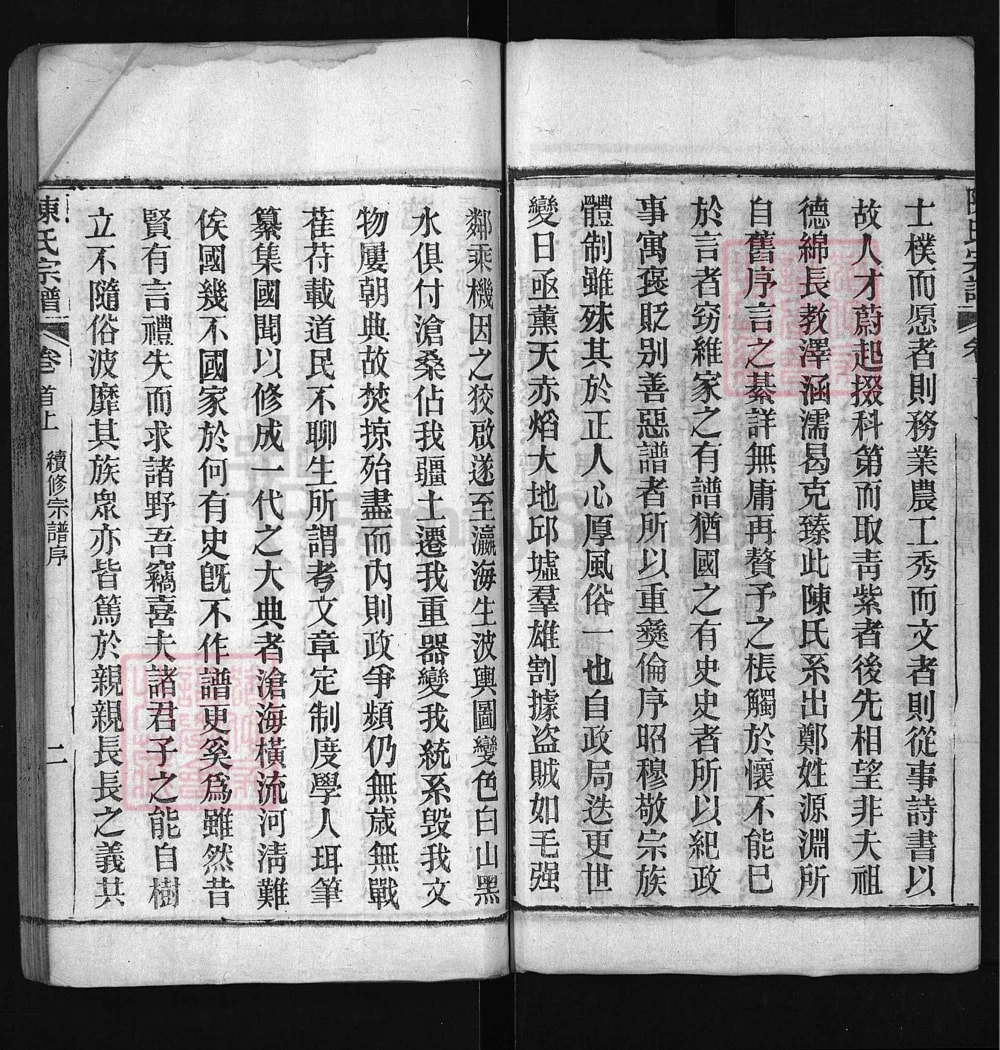 士樸而愿者則務業農工秀而文者則從事詩書以
故人才蔚起掇科第而取青紫者後先相望非夫祖
德綿長教澤涵濡曷克臻此陳氏系出鄭姓源淵所
自舊序言之綦詳無庸再贅予之棖觸於懷不能已
於言者窃維家之有譜猶國之有史史者所以紀政
事寓褒貶别善惡譜者所以重彜倫序昭穆敬宗族
體制雖殊其於正人心厚風俗一也自政局迭更世
變日亟薰天赤熖大地邱墟羣雄割據盗賊如毛强
鄰乘機因之狡啟遂至瀛海生波輿圖變色白山黑
水俱付滄桑佔我疆土遷我重器變我統系毁我文
物屢朝典故焚掠殆盡而内則政爭頻仍無歲無戰
萑苻載道民不聊生所謂考文章定制度學人珥筆
纂集國聞以修成一代之大典者滄海橫流河淸難
俟國幾不國家於何有史旣不作譜更奚爲雖然昔
賢有言禮失而求諸野吾竊喜夫諸君子之能自樹
立不隨俗波靡其族衆亦皆篤於親親長長之義共
陳氏宗譜 卷首上 續修宗譜序 二